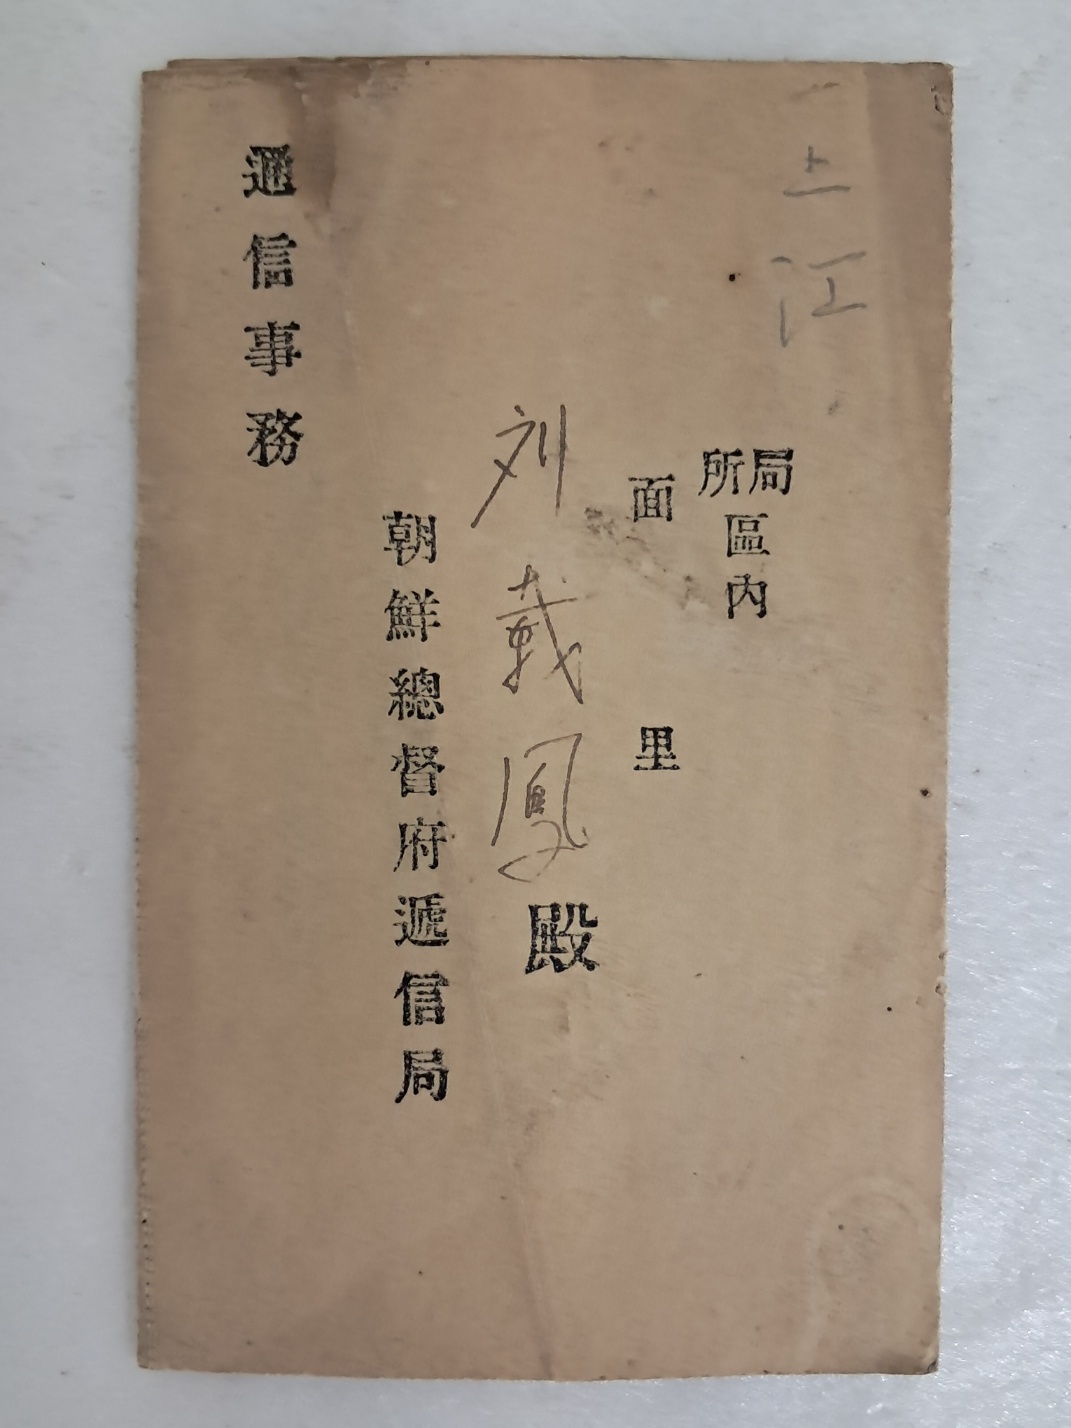 上江
局所區內
面 里
刘載鳳殿
朝鮮總督府遞信局
通信事務